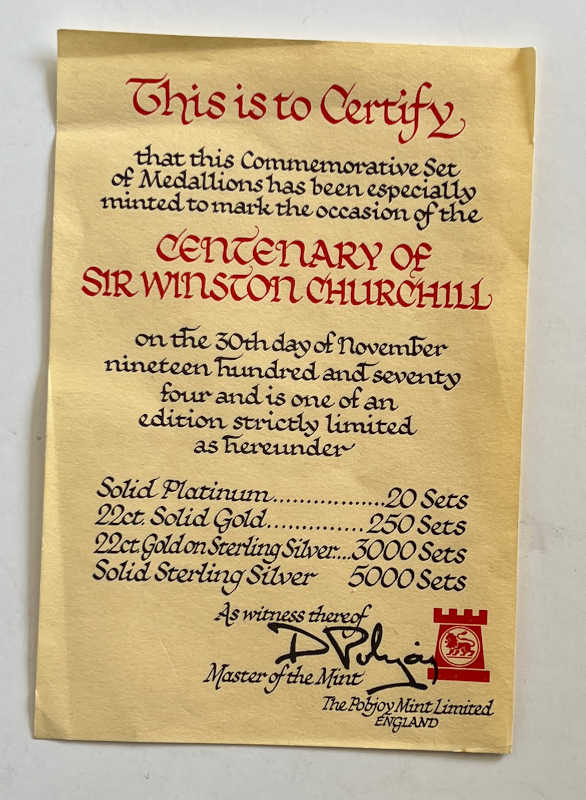 This is to Certify
that this Commemorative Set
of Medallions has been especially
minted to mark the occasion of the
CENTENARY OF
SIR WINSTON CHURCHILL
on the 30th day of November
nineteen hundred and seventy
four and is one of an
edition strictly limited
as hereunder
Solid Platinum.................20 Sets
22ct. Solid Gold..............250 Sets
22ct. Gold on Sterling Silver....3000 Sets
Solid Sterling Silver 5000 Sets
As witness thereof
D Pobjoy
Master of the Mint
The Pobjoy Mint Limited
ENGLAND